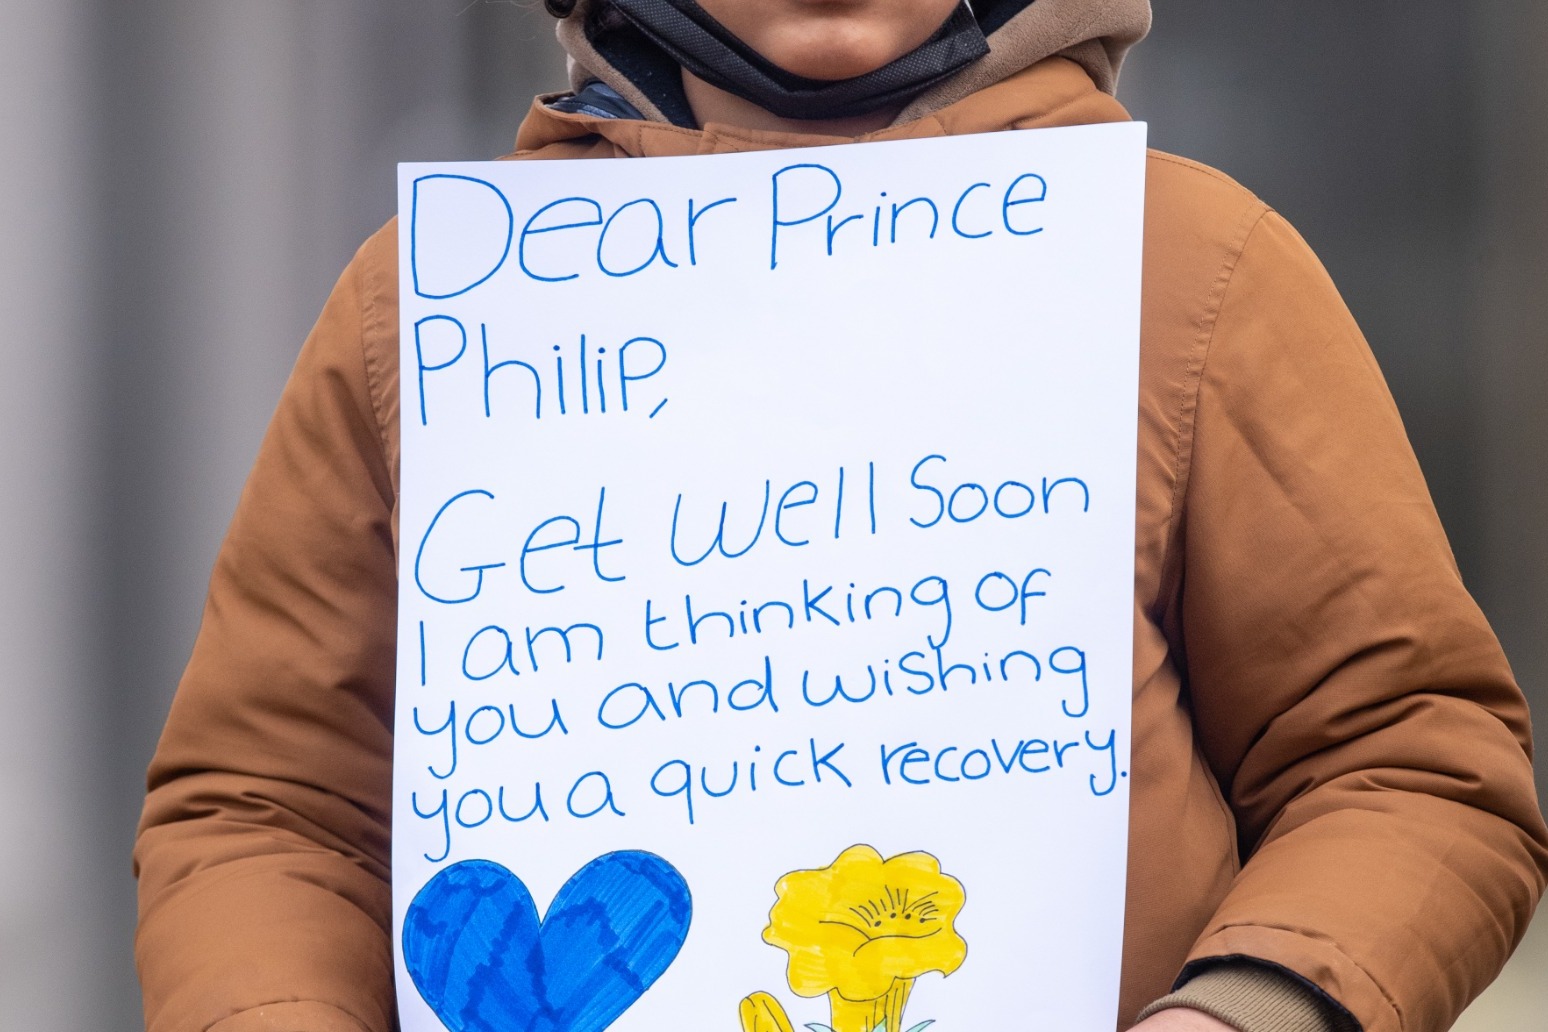 Dear Prince
Philip,
Get well Soon
I am thinking of
you and wishing
you a quick recovery.